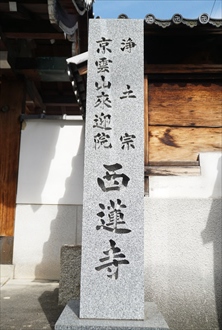 浄土宗
京雲山来迎院
西蓮寺